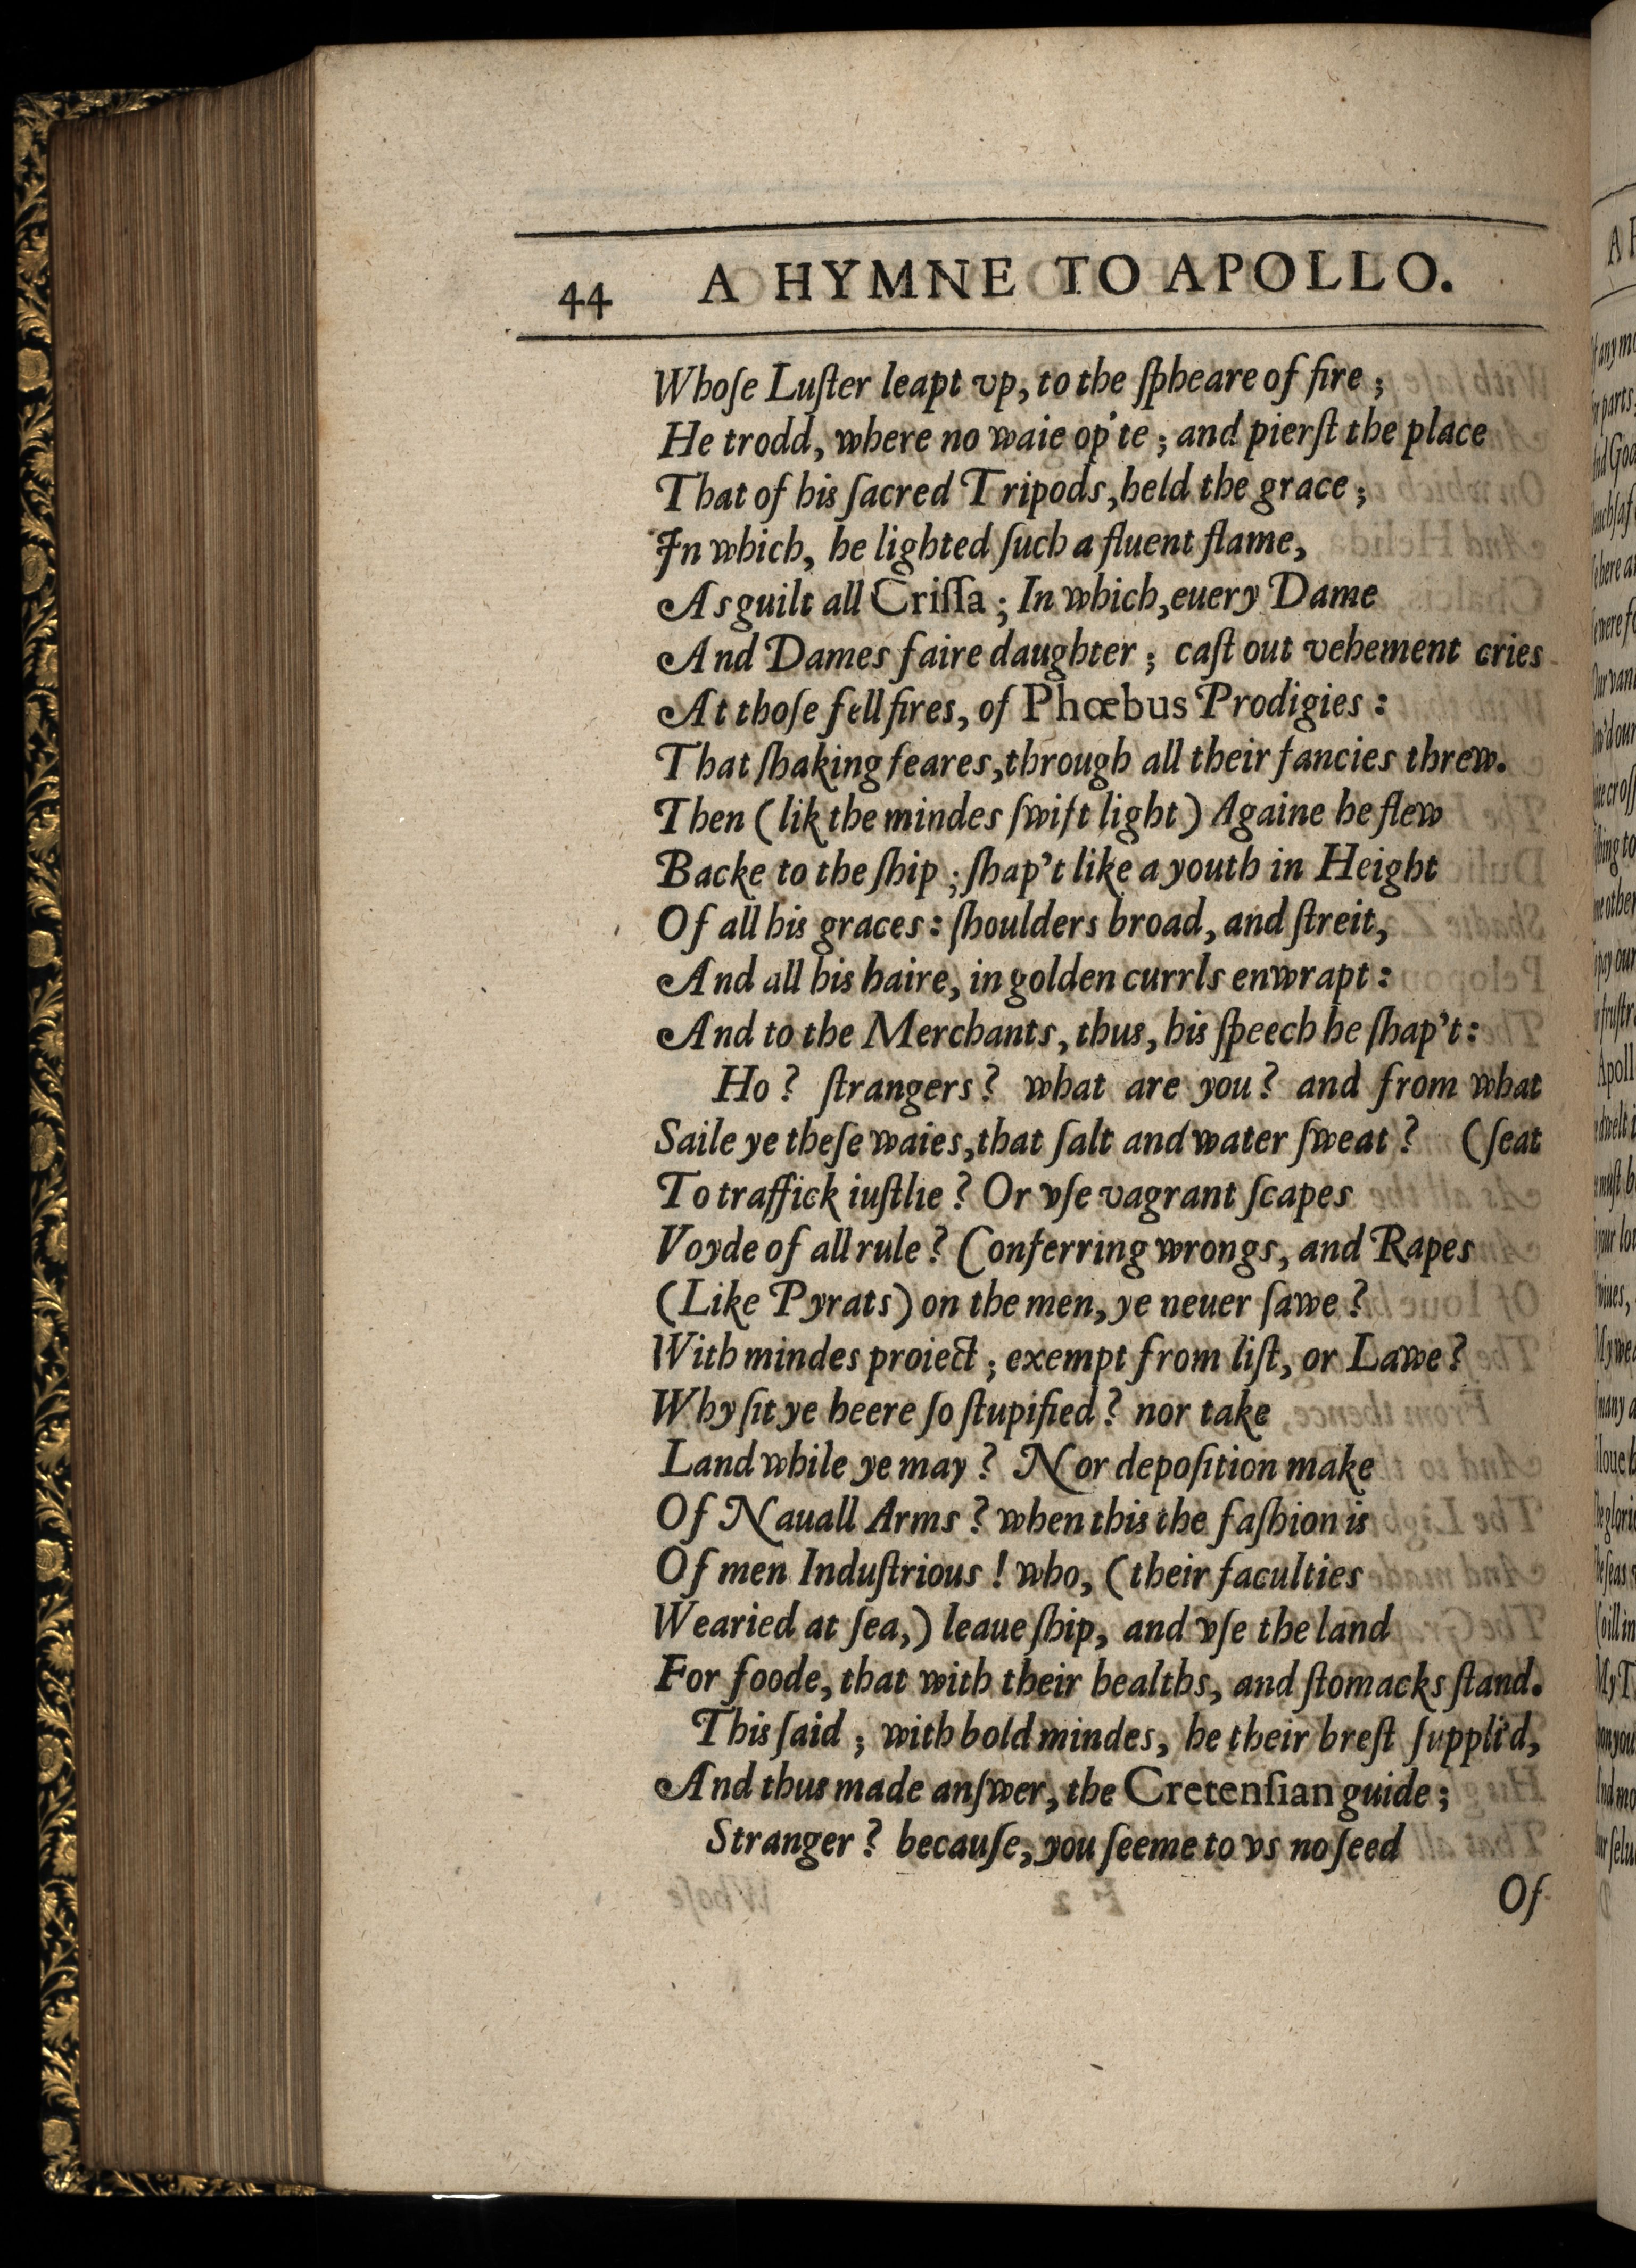 44 A HYMNE TO APOLLO.
Whoſe Luſter leapt vp, to the ſpheare of fire ;
He trodd, where no waie op'te ; and pierſt the place
That of his ſacred Tripods, held the grace ;
In which, he lighted ſuch a fluent flame,
As guilt all Criſſa ; In which, euery Dame
And Dames faire daughter ; caſt out vehement cries
At thoſe fell fires, of Phœbus Prodigies :
That ſhaking feares, through all their fancies threw.
Then (lik the mindes ſwift light) Againe he flew
Backe to the ſhip ; ſhap't like a youth in Height
Of all his graces : ſhoulders broad, and ſtreit,
And all his haire, in golden currls enwrapt :
And to the Merchants, thus, his ſpeech he ſhap't :
Ho ? ſtrangers ? what are you ? and from what
Saile ye theſe waies, that ſalt and water ſweat ? (ſeat
To traffick iuſtlie ? Or vſe vagrant ſcapes
Voyde of all rule ? Conferring wrongs, and Rapes
(Like Pyrats) on the men, ye neuer ſawe ?
With mindes proiect ; exempt from liſt, or Lawe ?
Why ſit ye heere ſo ſtupified ? nor take
Land while ye may ? Nor depoſition make
Of Nauall Arms ? when this the faſhion is
Of men Induſtrious ! who, (their faculties
Wearied at ſea,) leaue ſhip, and vſe the land
For foode, that with their healths, and ſtomacks ſtand.
This ſaid ; with bold mindes, he their breſt ſuppli'd,
And thus made anſwer, the Cretenſian guide ;
Stranger ? becauſe, you ſeeme to vs no ſeed
Of